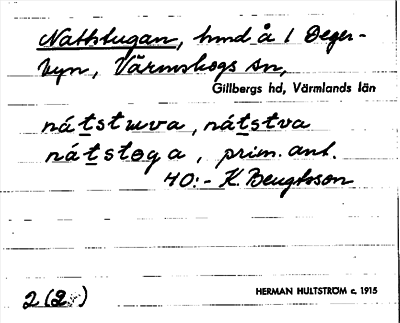 Nattstugan, hmd å 1 Deger-
byn, Värmskogs sn,
Gillbergs hd, Värmlands län
nátstuva, nátstva
nátstoga, prim. ant.
40:- K. Bengtsson
2 (2)
HERMAN HULTSTRÖM c. 1915